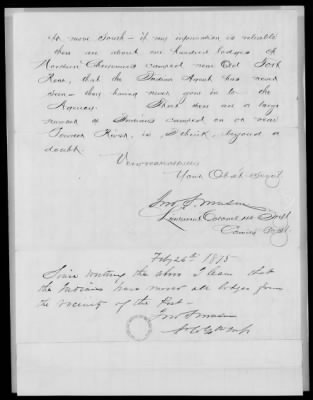 to move South - if my information is reliable
there are about one hundred lodges of
Northern Cheyennes camped near Old Fort
Reno, that the Indian Agent has never
seen - they having never gone in to the
Agency. That there are a large
number of Indians camped on or near
Powder River, is, I think, beyond a
doubt.
Very respectfully
Your Obdt Servt
Jno S. Mason
Lieutenant Colonel 4th Infty
Comdg Post
Feby 26th 1875
Since writing the above I learn that
the Indians have moved all lodges from
the vicinity of the Post -
Jno S Mason